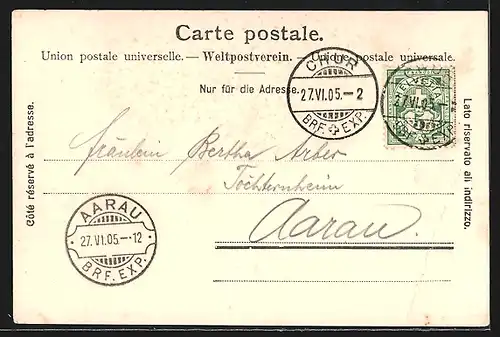 Carte postale.
Union postale universelle. — Weltpostverein. — Unione postale universale.
Nur für die Adresse.
CHUR
27.VI.05.–2
BRF. EXP.
HELVETIA
27.VI.05.–
EXP.
Côté réservé à l'adresse.
Lato riservato all indirizzo.
Fräulein Bertha
Töchternheim
Aarau.
AARAU
27.VI.05–12
BRF. EXP.